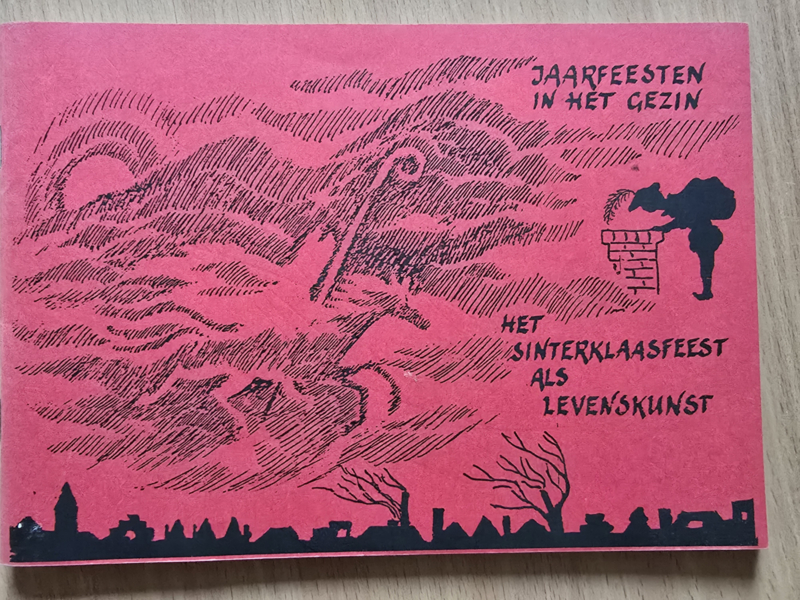 JAARFEESTEN
IN HET GEZIN
HET
SINTERKLAASFEEST
ALS
LEVENSKUNST